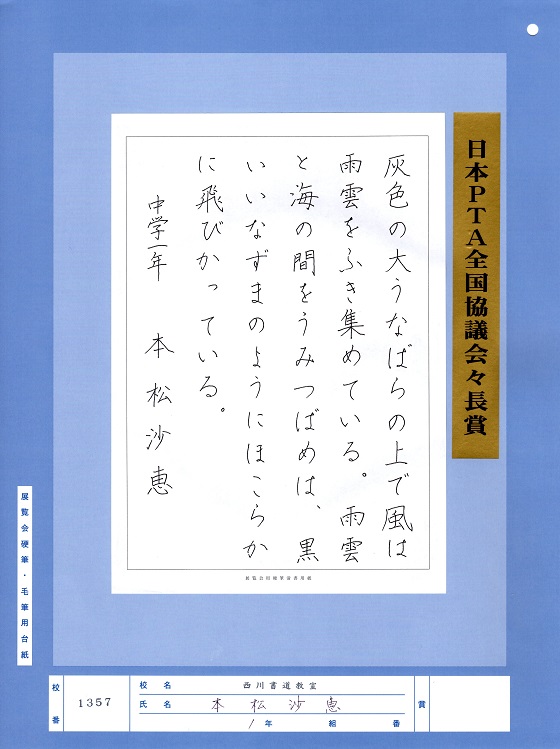 日本PTA全国協議会々長賞
灰色の大うなばらの上で風は
雨雲をふき集めている。雨雲
と海の間をうみつばめは、黒
いいなずまのようにほこらか
に飛びかっている。
中学一年 本松沙恵
展覧会硬筆・毛筆用台紙
校番 1357
校名 西川書道教室
氏名 本松沙恵
1年 組 番
賞